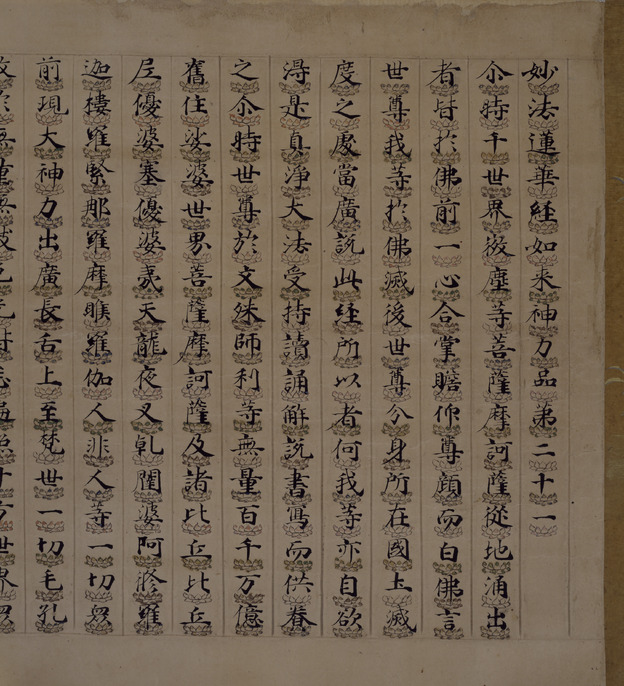 妙法蓮華経如来神力品第二十一
尒時千世界微塵等菩薩摩訶薩従地涌出
者皆於佛前一心合掌瞻仰尊顔而白佛言
世尊我等於佛滅後世尊分身所在國土滅
度之處當廣説此経所以者何我等亦自欲
得是真淨大法受持讀誦解説書寫而供養
之尒時世尊於文殊師利等無量百千万億
舊住娑婆世界菩薩摩訶薩及諸比丘比丘
尼優婆塞優婆夷天龍夜叉乹闥婆阿脩羅
迦樓羅緊那羅摩睺羅伽人非人等一切衆
前現大神力出廣長舌上至梵世一切毛孔